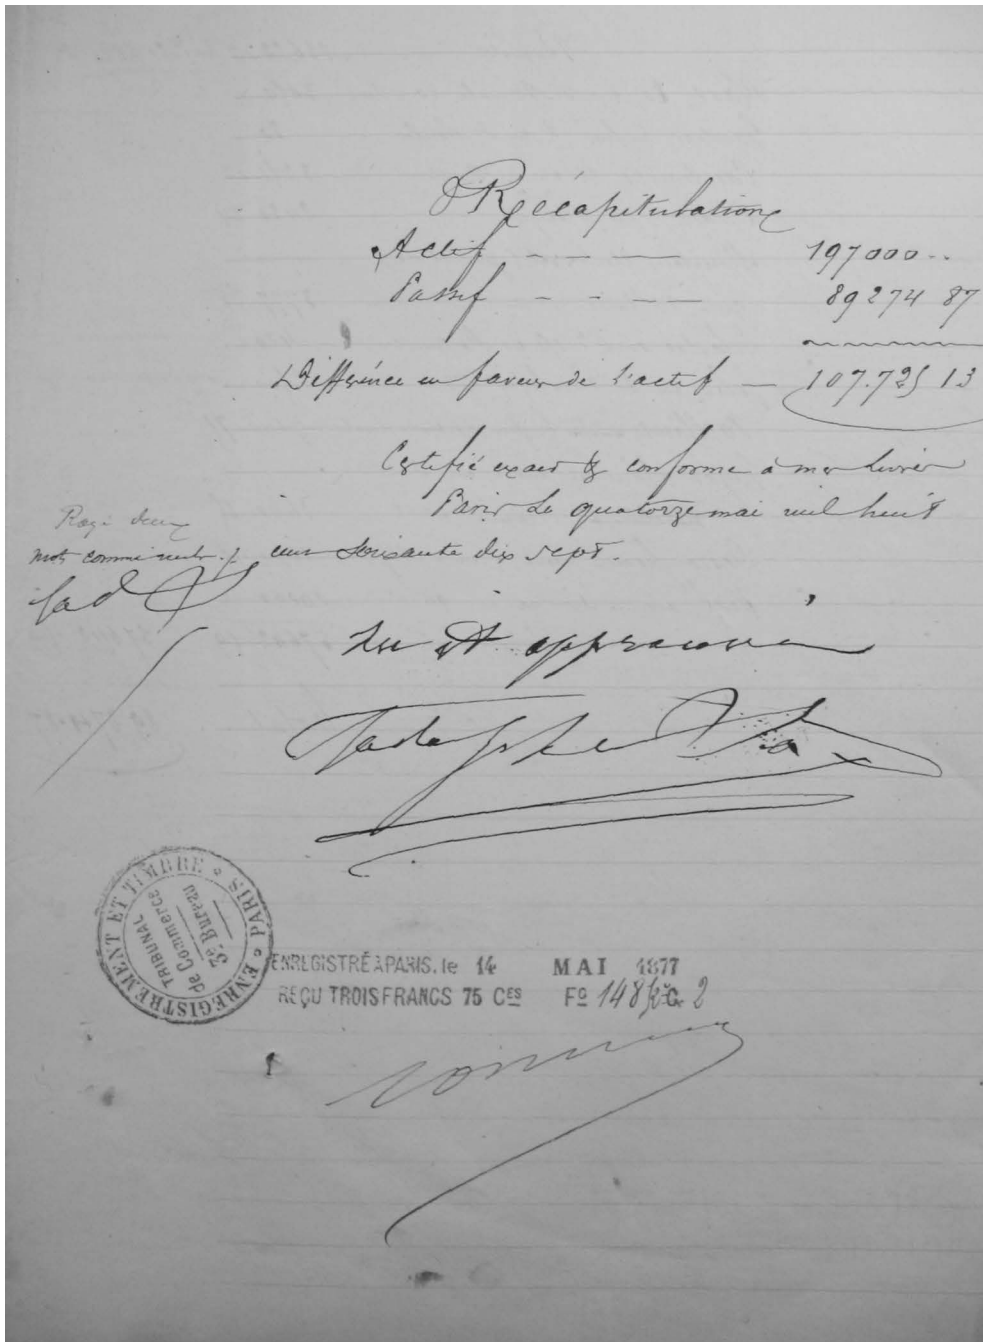 Récapitulation
Actif - - - - 197000 ..
Passif - - - - 89274 87
Différence en faveur de l'actif — 107.725 13
Certifié exact & conforme à mes livres
Paris le quatorze mai mil huit
cent soixante dix sept.
Rayé deux
mots comme nuls ./.
Lu et approuvé
ENREGISTREMENT ET TIMBRE
PARIS
TRIBUNAL
de Commerce
3e Bureau
ENREGISTRÉ À PARIS, le 14 MAI 1877
REÇU TROIS FRANCS 75 CES Fº 148 Rº C. 2